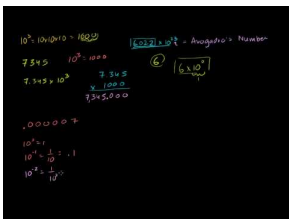 10³ = 10×10×10 = 1000
7345 10³ = 1000
7.345 × 10³
7.345
× 1000
7,345.000
6022 × 10²³ = Avogadro's Number
6
6 × 10⁰
.000007
10⁰ = 1
10⁻¹ = 1/10 = .1
10⁻² = 1/10²